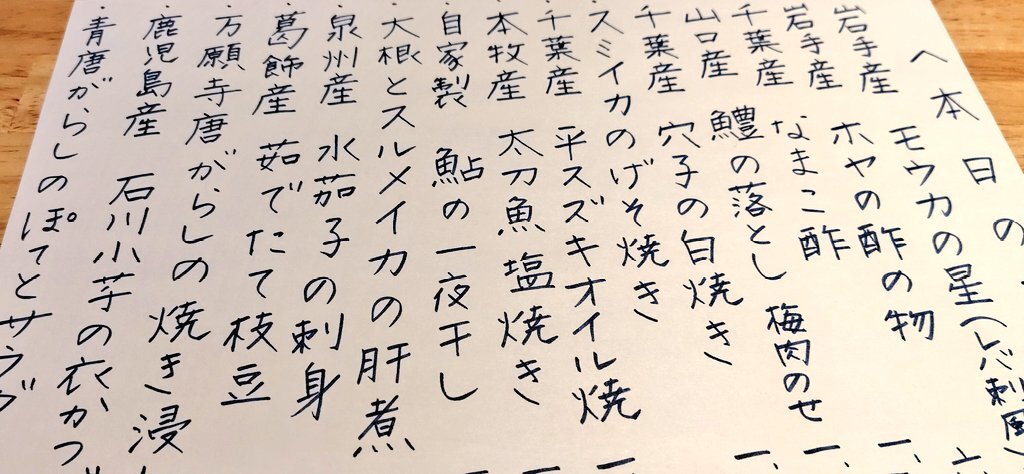 へ本日の
・岩手産 モウカの星(レバ刺風)
・岩手産 ホヤの酢の物
・千葉産 なまこ酢
・山口産 鱧の落とし 梅肉のせ
・千葉産 穴子の白焼き
・スミイカのげそ焼き
・千葉産 平スズキオイル焼
・本牧産 太刀魚塩焼き
・自家製 鮎の一夜干し
・大根とスルメイカの肝煮
・泉州産 水茄子の刺身
・葛飾産 茹でたて枝豆
・万願寺唐がらしの焼き浸し
・鹿児島産 石川小芋の衣かつ
・青唐がらしのぽてとサラダ